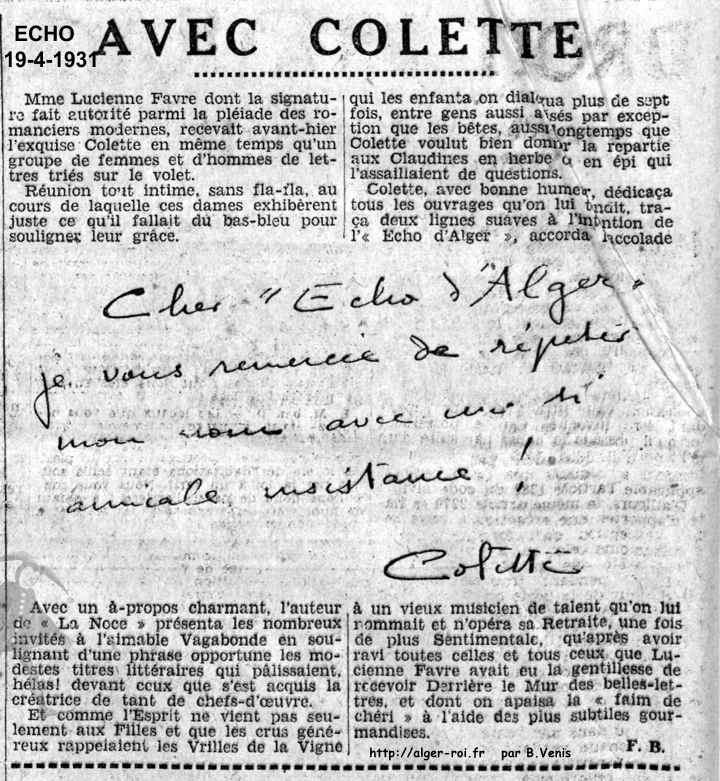 ECHO
19-4-1931
AVEC COLETTE
Mme Lucienne Favre dont la signatu-
re fait autorité parmi la pléiade des ro-
manciers modernes, recevait avant-hier
l'exquise Colette en même temps qu'un
groupe de femmes et d'hommes de let-
tres triés sur le volet.
Réunion tout intime, sans fla-fla, au
cours de laquelle ces dames exhibèrent
juste ce qu'il fallait du bas-bleu pour
souligner leur grâce.
qui les enfanta on dialogua plus de sept
fois, entre gens aussi avisés par excep-
tion que les bêtes, aussi longtemps que
Colette voulut bien donner la repartie
aux Claudines en herbe ou en épi qui
l'assaillaient de questions.
Colette, avec bonne humeur, dédicaça
tous les ouvrages qu'on lui tendit, tra-
ça deux lignes suaves à l'intention de
l'« Echo d'Alger », accorda l'accolade
Cher "Echo d'Alger"
je vous remercie de répéter
mon nom avec une si
amicale insistance !
Colette
Avec un à-propos charmant, l'auteur
de « La Noce » présenta les nombreux
invités à l'aimable Vagabonde en sou-
lignant d'une phrase opportune les mo-
destes titres littéraires qui pâlissaient,
hélas! devant ceux que s'est acquis la
créatrice de tant de chefs-d'œuvre.
Et comme l'Esprit ne vient pas seu-
lement aux Filles et que les crus géné-
reux rappelaient les Vrilles de la Vigne
à un vieux musicien de talent qu'on lui
nommait et n'opéra sa Retraite, une fois
de plus Sentimentale, qu'après avoir
ravi toutes celles et tous ceux que Lu-
cienne Favre avait eu la gentillesse de
recevoir Derrière le Mur des belles-let-
tres, et dont on apaisa la « faim de
chéri » à l'aide des plus subtiles gour-
mandises.
F. B.
http://alger-roi.fr par B.Venis